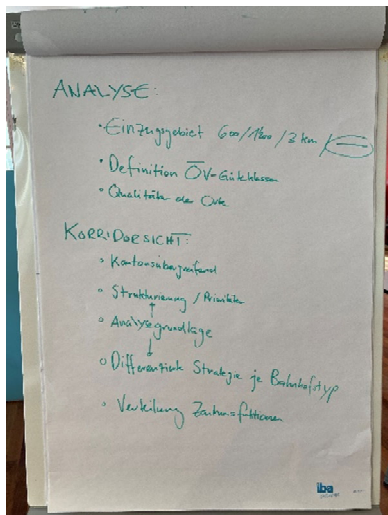 ANALYSE:
• Einzugsgebiet 600/1200/3 km /
• Definition ÖV-Güteklassen
• Qualitäten der Orte
KORRIDORSICHT:
• Kantonsübergreifend
• Strukturierung / Prioritäten
• Analysegrundlage
• Differenzierte Strategie je Bahnhofstyp
• Verteilung Zentrumsfunktionen
iba